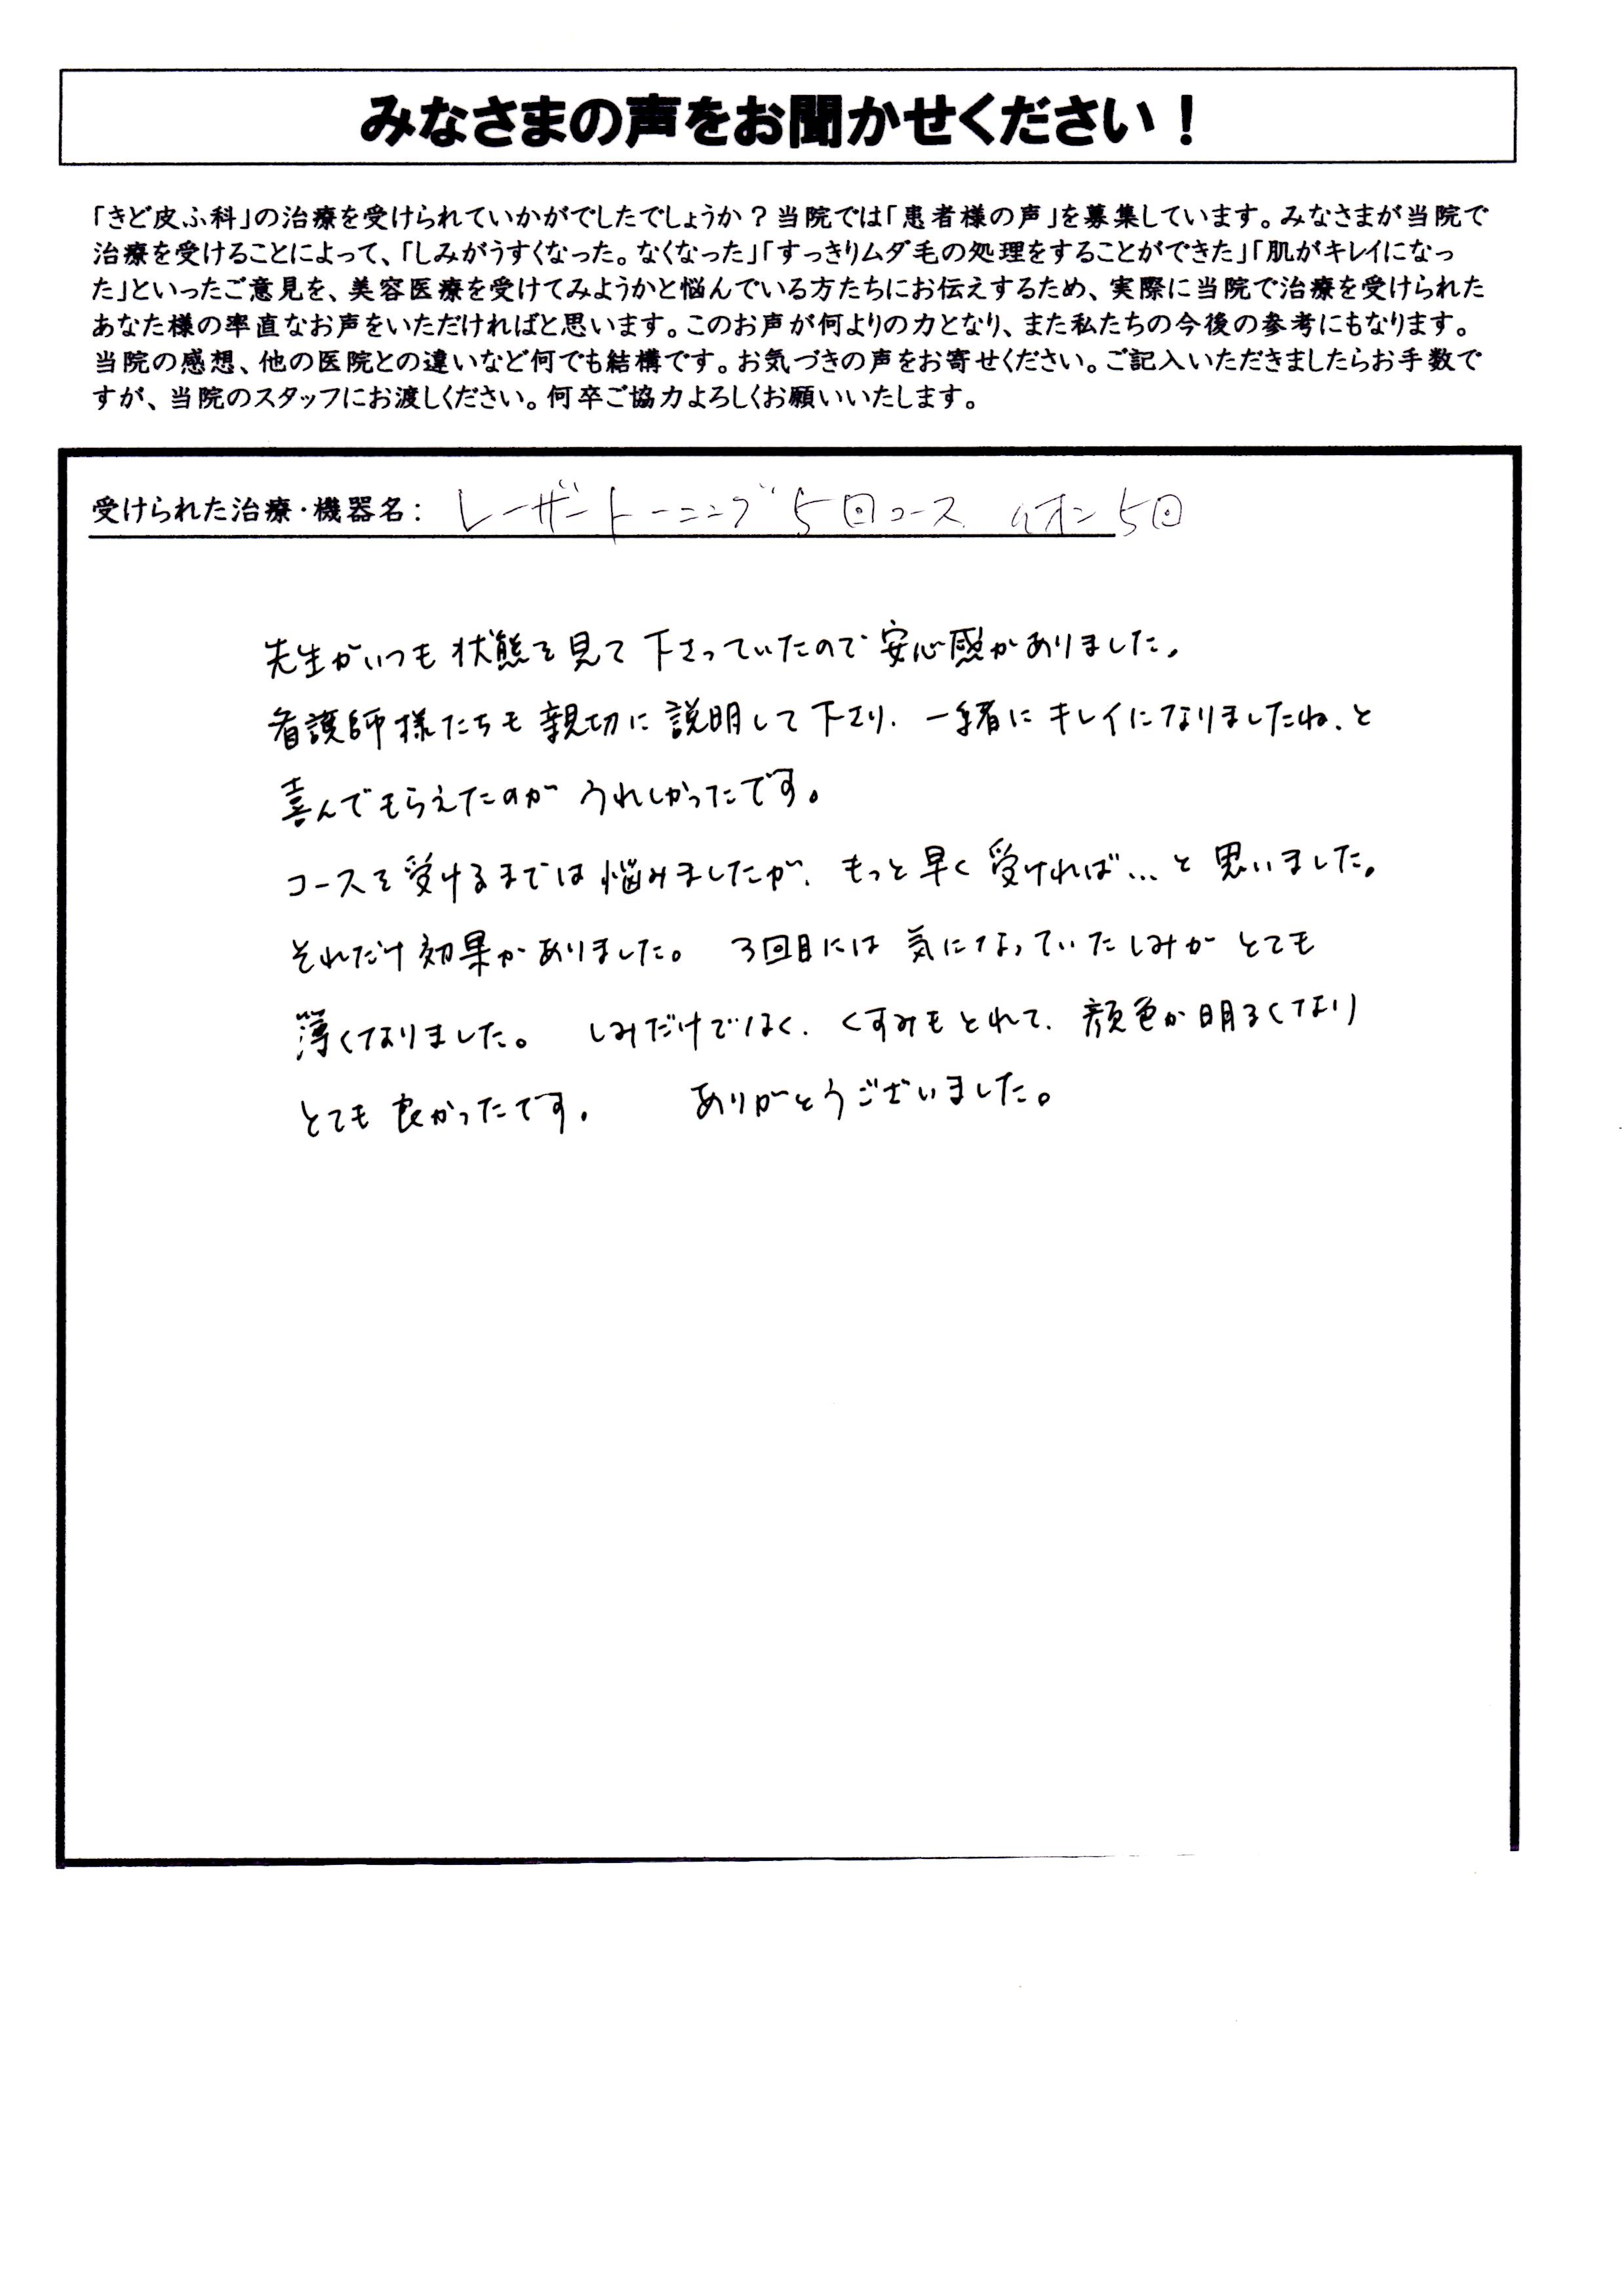 みなさまの声をお聞かせください！
「きど皮ふ科」の治療を受けられていかがでしたでしょうか？当院では「患者様の声」を募集しています。みなさまが当院で
治療を受けることによって、「しみがうすくなった。なくなった」「すっきりムダ毛の処理をすることができた」「肌がキレイになっ
た」といったご意見を、美容医療を受けてみようかと悩んでいる方たちにお伝えするため、実際に当院で治療を受けられた
あなた様の率直なお声をいただければと思います。このお声が何よりの力となり、また私たちの今後の参考にもなります。
当院の感想、他の医院との違いなど何でも結構です。お気づきの声をお寄せください。ご記入いただきましたらお手数で
すが、当院のスタッフにお渡しください。何卒ご協力よろしくお願いいたします。
受けられた治療・機器名： レーザートーニング 5回コース イオン5回
先生がいつも状態を見て下さっていたので安心感がありました。
看護師様たちも親切に説明して下さり、一緒にキレイになりましたね、と
喜んでもらえたのがうれしかったです。
コースを受けるまでは悩みましたが、もっと早く受ければ…と思いました。
それだけ効果がありました。 3回目には気になっていたしみがとても
薄くなりました。 しみだけでなく、くすみもとれて、顔色が明るくなり
とても良かったです。 ありがとうございました。